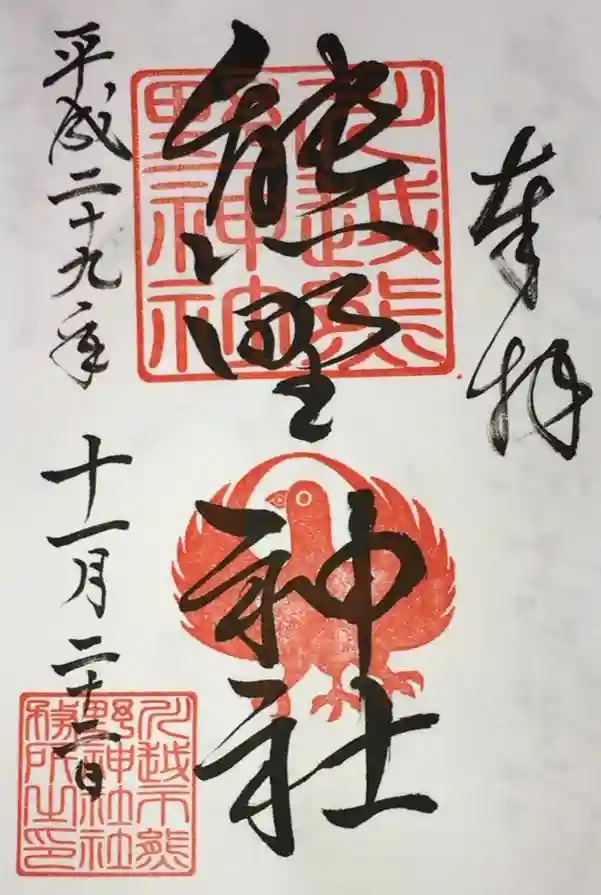 奉拝
川越熊
野神社
熊野神社
平成二十九年十一月二十二日
川越市熊
野神社社
務所之印